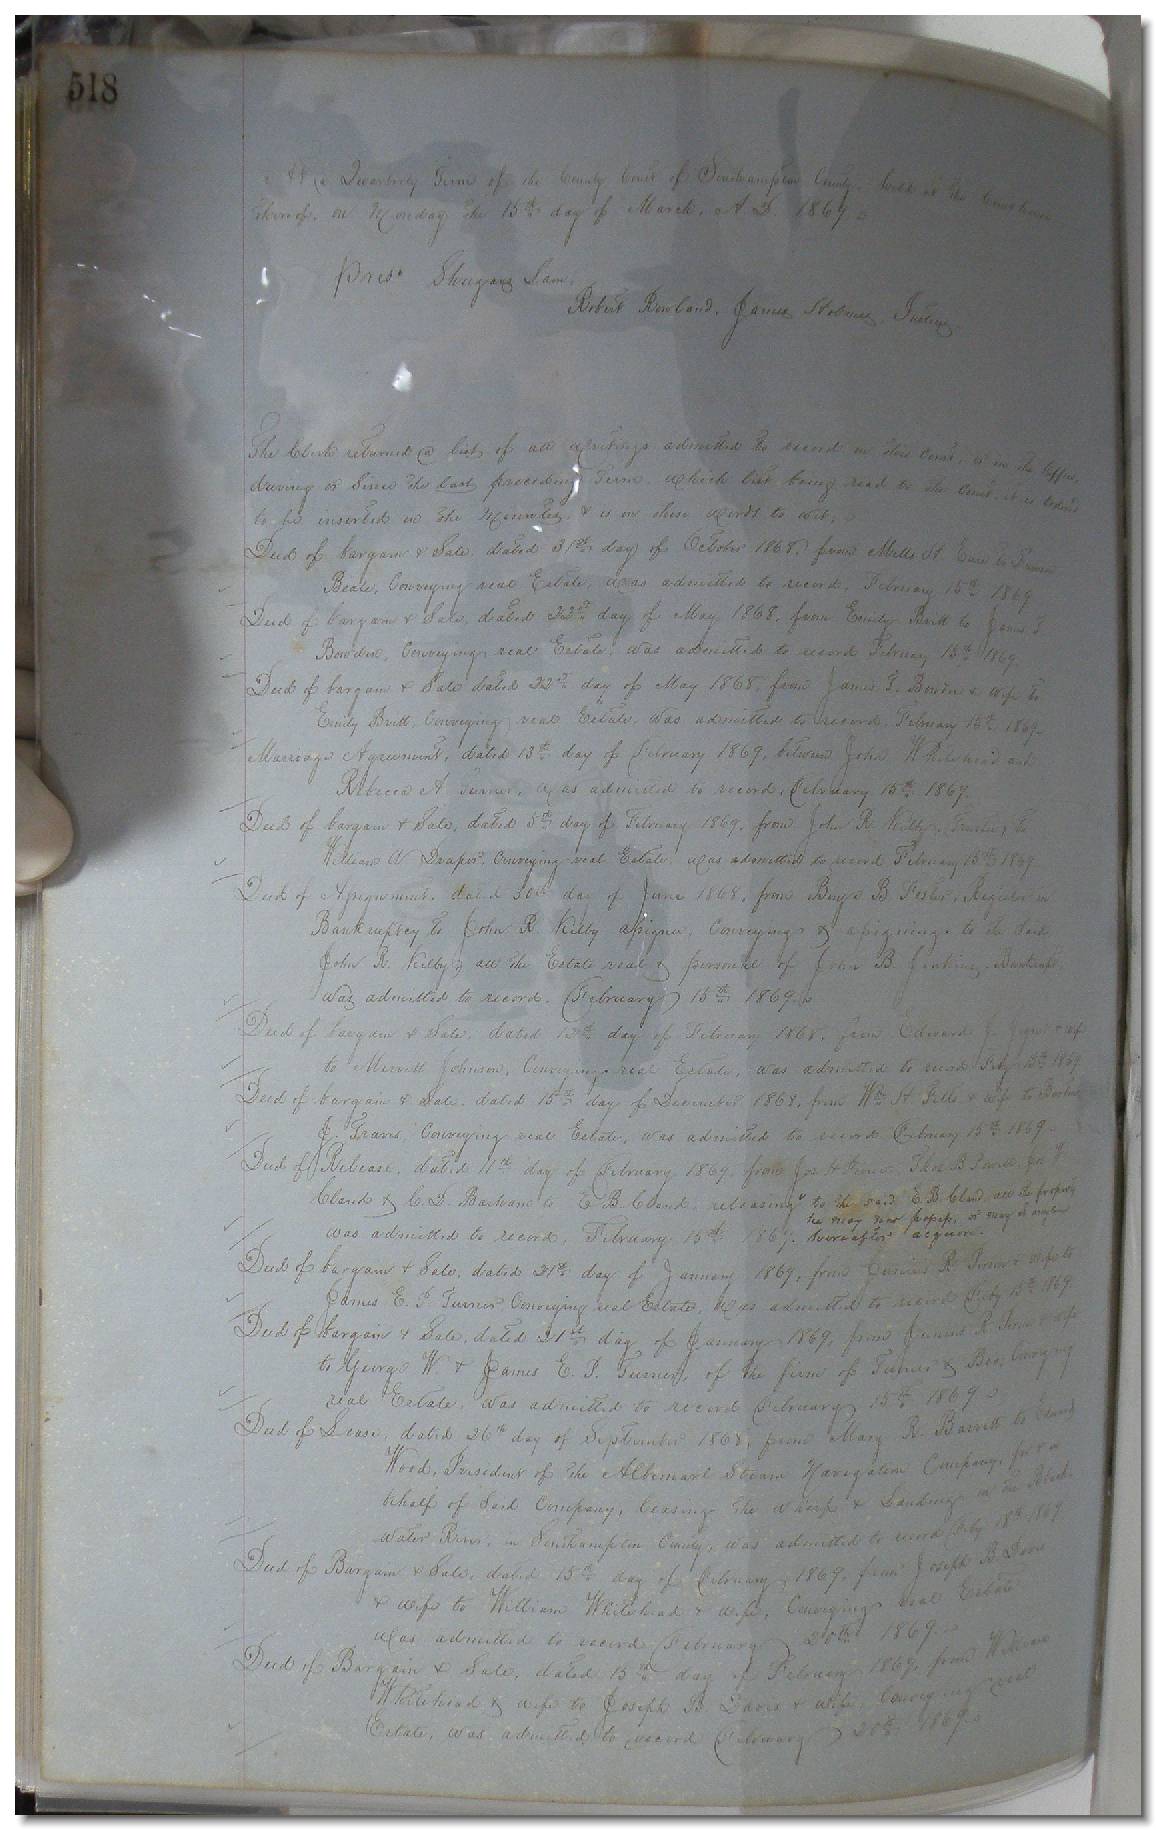 518
Quarterly Term of the County Court of Southampton County, held at the Courthouse
thereof, on Monday the 15th day of March, A.D. 1869
Prest
Robert Rowland, James Justices
The Clerk returned a list of all writings admitted to record in this Court, or in the Office,
during or since the last preceding Term, which list being read to the Court, it is ordered
to be inserted in the Minutes, & is in these words to wit;
Deed of bargain & Sale, dated 31st day of October 1868, from Mills H. to
Beale, Conveying real Estate, was admitted to record, February 15th 1869
Deed of bargain & Sale, dated 22nd day of May 1868, from Emily Britt to James T
Bowden, Conveying real Estate, was admitted to record February 15th 1869.
Deed of bargain & Sale dated 22nd day of May 1868, from James T. Bowden & wife to
Emily Britt, Conveying real Estate, was admitted to record, February 15th 1869.
Marriage Agreement, dated 13th day of February 1869, between John Whitehead and
Rebecca A. Turner, was admitted to record, February 15th 1869.
Deed of bargain & Sale, dated 5th day of February 1869, from John R. Kilby, Trustee, to
William W Draper, Conveying real Estate, was admitted to record February 15th 1869
Deed of Assignment, dated 30th day of June 1868, from Benj. B. Foster, Register in
Bankruptcy to John R. Kilby assignee, Conveying & assigning to the said
John R. Kilby, all the Estate real & personal of John B. Jenkins, Bankrupt,
was admitted to record, February 15th 1869.
Deed of bargain & Sale, dated 12th day of February 1868, from Edward J. & wife
to Merritt Johnson, Conveying real Estate, was admitted to record Feby 15th 1869
Deed of bargain & Sale, dated 15th day of December 1868, from Wm H. & wife to
J. Travis, Conveying real Estate, was admitted to record February 15th 1869.
Deed of Release, dated 11th day of February 1869, from Jos. H. Prince, Thos B
Claud & C. D. Barham to E. B. Claud, releasing to the said E. B. Claud all the property
he may now possess, or may
was admitted to record, February 15th 1869. hereafter acquire.
Deed of bargain & Sale, dated 21st day of January 1869, from Junius R. & wife to
James E. P. Turner Conveying real Estate, was admitted to record Feby 15th 1869
Deed of bargain & Sale, dated 21st day of January 1869, from Junius R. & wife
to George W. & James E. P. Turner, of the firm of Turner & Bro, Conveying
real Estate, was admitted to record February 15th 1869
Deed of Lease, dated 26th day of September 1868, from Mary R. Barrett to Edward
Wood, President of the Albemarl Steam Navigation Company, for & in
behalf of said Company, leasing the wharf & Landing on the Black
water River, in Southampton County, was admitted to record Feby 18th 1869
Deed of Bargain & Sale, dated 15th day of February 1869, from Joseph B. Davis
& wife to William Whitehead & wife, Conveying real Estate
was admitted to record February 20th 1869.
Deed of Bargain & Sale, dated 15th day of February 1869, from William
Whitehead & wife to Joseph B. Davis & wife, Conveying real
Estate, was admitted to record February 20th 1869.